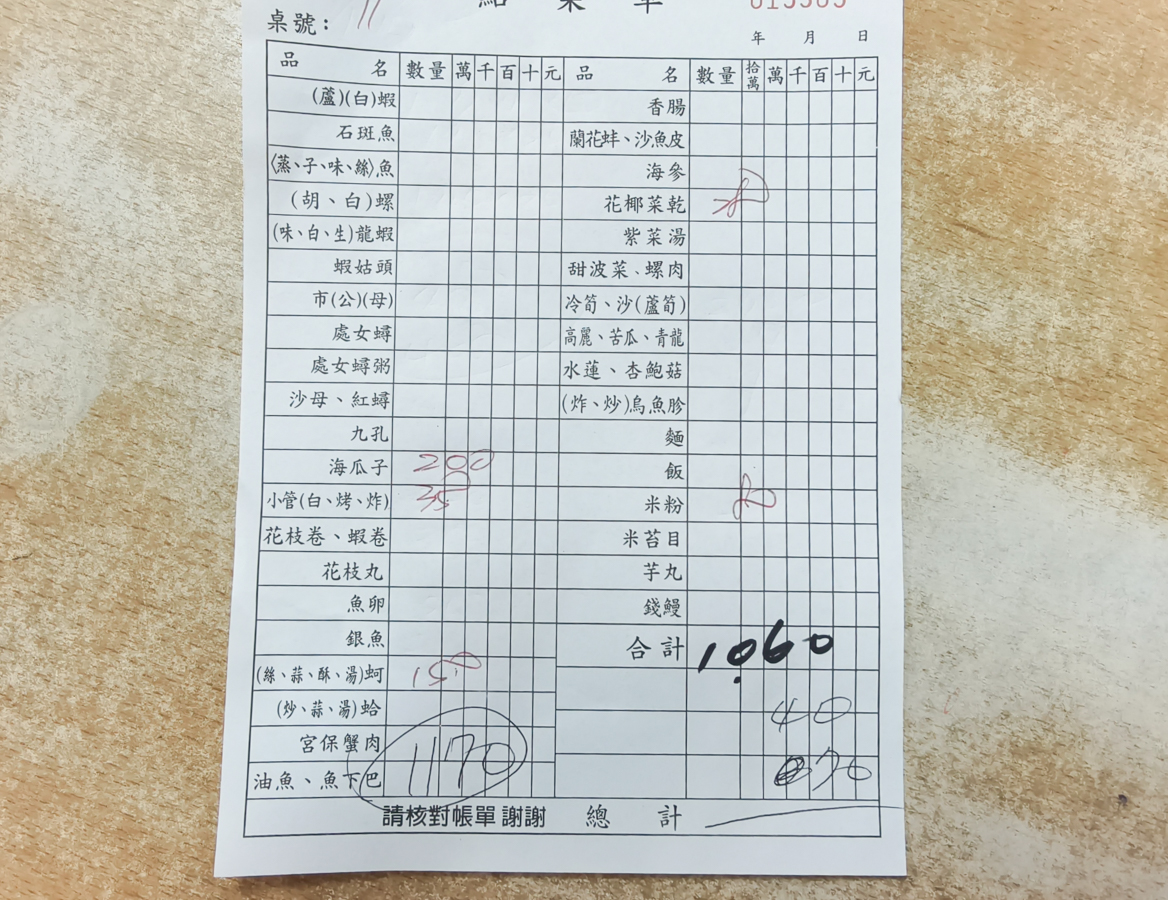 點菜單
桌號: 11
年 月 日
品名 數量 萬 千 百 十 元 品名 數量 拾萬 萬 千 百 十 元
(蘆)(白)蝦 香腸
石斑魚 蘭花蚌、沙魚皮
〈蒸、子、味、絲〉魚 海參
(胡、白)螺 花椰菜乾
(味、白、生)龍蝦 紫菜湯
蝦姑頭 甜波菜、螺肉
市(公)(母) 冷筍、沙(蘆筍)
處女蟳 高麗、苦瓜、青龍
處女蟳粥 水蓮、杏鮑菇
沙母、紅蟳 (炸、炒)烏魚胗
九孔 麵
海瓜子 200 飯
小管(白、烤、炸) 350 米粉
花枝卷、蝦卷 米苔目
花枝丸 芋丸
魚卵 錢鰻
銀魚 合計 1060
(絲、蒜、酥、湯)蚵 150
(炒、蒜、湯)蛤 40
宮保蟹肉 1170
油魚、魚下巴
請核對帳單 謝謝 總計